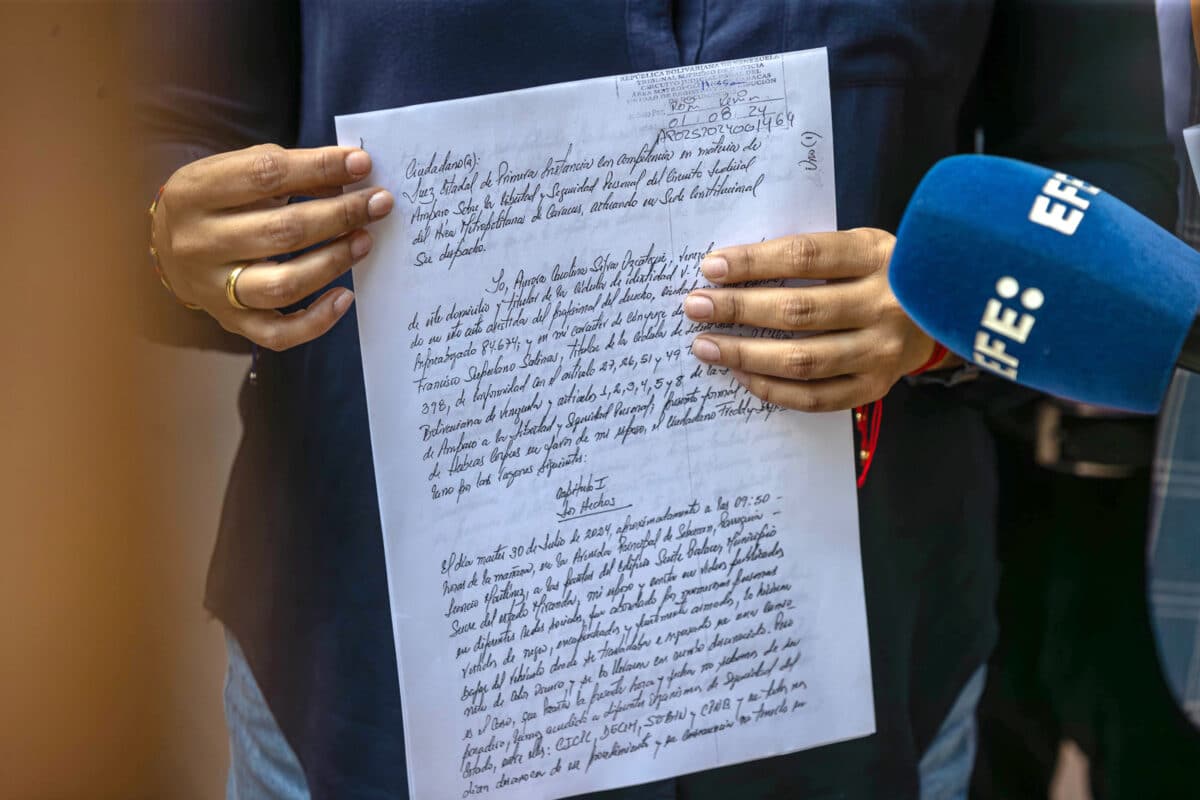 REPÚBLICA BOLIVARIANA DE VENEZUELA
TRIBUNAL SUPREMO DE JUSTICIA
CIRCUITO JUDICIAL DEL
01 08 24
AR02570240001464
Uno (1)
Ciudadano(a):
Juez Estadal de Primera Instancia con Competencia en materia de
Amparo Sobre la Libertad y Seguridad Personal del Circuito Judicial
del Área Metropolitana de Caracas, actuando en Sede Constitucional
Su despacho.
Yo, Aurora Carolina Silva
de este domicilio y titular de la Cédula de identidad V-
do en este acto asistida del profesional del derecho,
Inpreabogado 84.674, y en mi carácter de Cónyuge
Francisco Superlano Salinas, titular de la Cédula de
398, de Conformidad con el artículo 27, 26, 51 y 49
Bolivariana de Venezuela y artículos 1, 2, 3, 4, 5 y 8, de la
de Amparo a la libertad y Seguridad Personal, presento formal
de Habeas Corpus en favor de mi esposo, el ciudadano Freddy
lano por las razones siguientes:
Capítulo I
Los Hechos
El día martes 30 de Julio de 2024, aproximadamente a las 09:50
horas de la mañana, en la Avenida Principal de Sebucán, Parroquia
Leoncio Martínez, a las puertas del Edificio Municipio
Sucre del estado Miranda, mi esposo y consta en videos publicados
en diferentes redes sociales, fue abordado por numerosas personas
vestidos de negro, encapuchados y fuertemente armados, lo hicieron
bajar del vehículo donde se trasladaba e ingresado en una camio-
neta de color oscuro y se lo llevaron con rumbo desconocido. Pero
es el Caso, que hasta la presente hora y fecha no sabemos de su
paradero, hemos acudido a diferentes Organismos de Seguridad del
Estado, entre ellos: CICPC, DGCIM, SEBIN y CPNB y en todos nos
dicen desconocen de su procedimiento y en consecuencia no tenerlo en
EFE:
EFE: